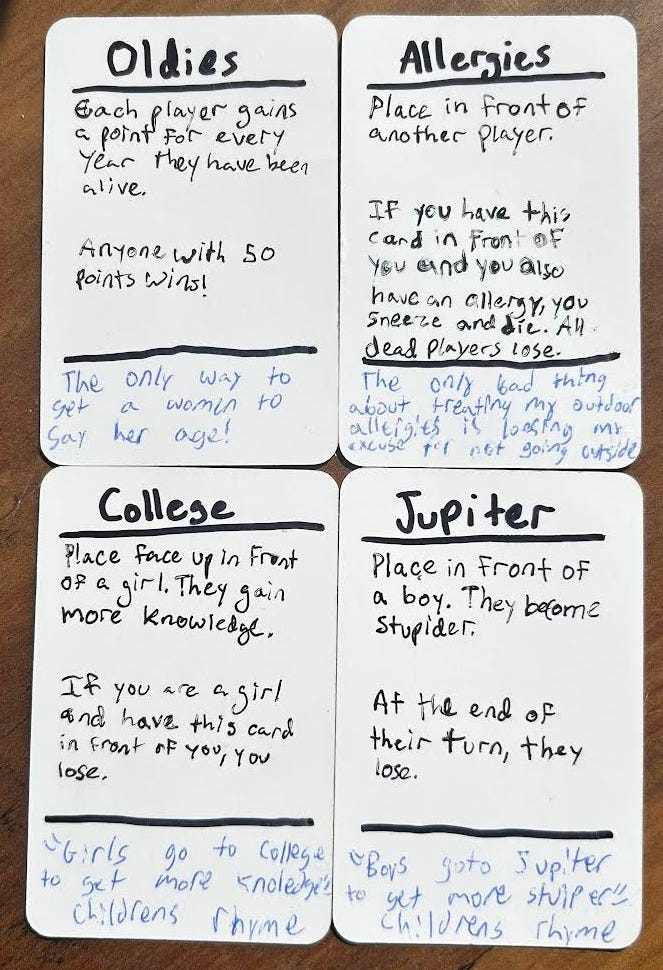 Oldies
Each player gains
a point for every
year they have been
alive.
Anyone with 50
points wins!
The only way to
get a women to
say her age!
Allergies
Place in front of
another player.
If you have this
card in front of
you and you also
have an allergy, you
sneeze and die. All
dead players lose.
The only bad thing
about treating my outdoor
allergies is loosing my
excuse for not going outside
College
Place face up in front
of a girl. They gain
more knowledge.
If you are a girl
and have this card
in front of you, you
lose.
"Girls go to College
to get more knoledge"
childrens rhyme
Jupiter
Place in front of
a boy. They become
stupider.
At the end of
their turn, they
lose.
"Boys goto Jupiter
to get more stuiper"
childrens rhyme